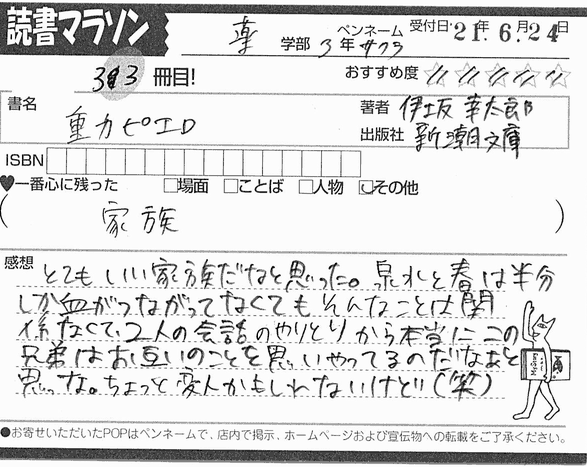 読書マラソン
薬 学部 3年 ペンネーム サクラ 受付日・21年6月24日
冊目! おすすめ度 ☆☆☆☆☆
書名 重力ピエロ
著者 伊坂 幸太郎
出版社 新潮文庫
ISBN
♥一番心に残った □場面 □ことば □人物 ☑その他
( 家族 )
感想
とてもいい家族だなと思った。泉水と春は半分
しか血がつながってなくてもそんなことは関
係なくて、2人の会話のやりとりから本当にこの
兄弟はお互いのことを思いやってるのだなぁと
思った。ちょっと変人かもしれないけど!(笑)
●お寄せいただいたPOPはペンネームで、店内で掲示、ホームページおよび宣伝物への転載をご了承ください。